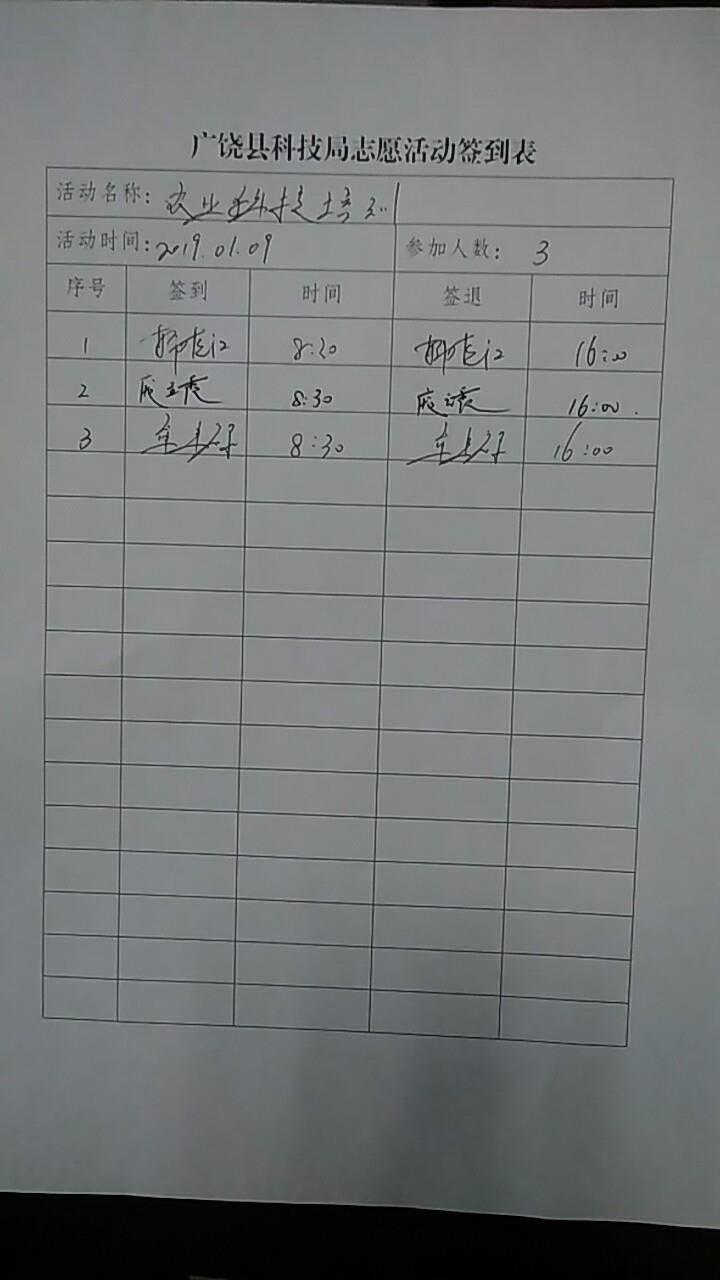 广饶县科技局志愿活动签到表
活动名称：农业科技培训
活动时间：2019.01.09 参加人数：3
序号 签到 时间 签退 时间
1 8:20 16:00
2 8:30 16:00.
3 8:30 16:00